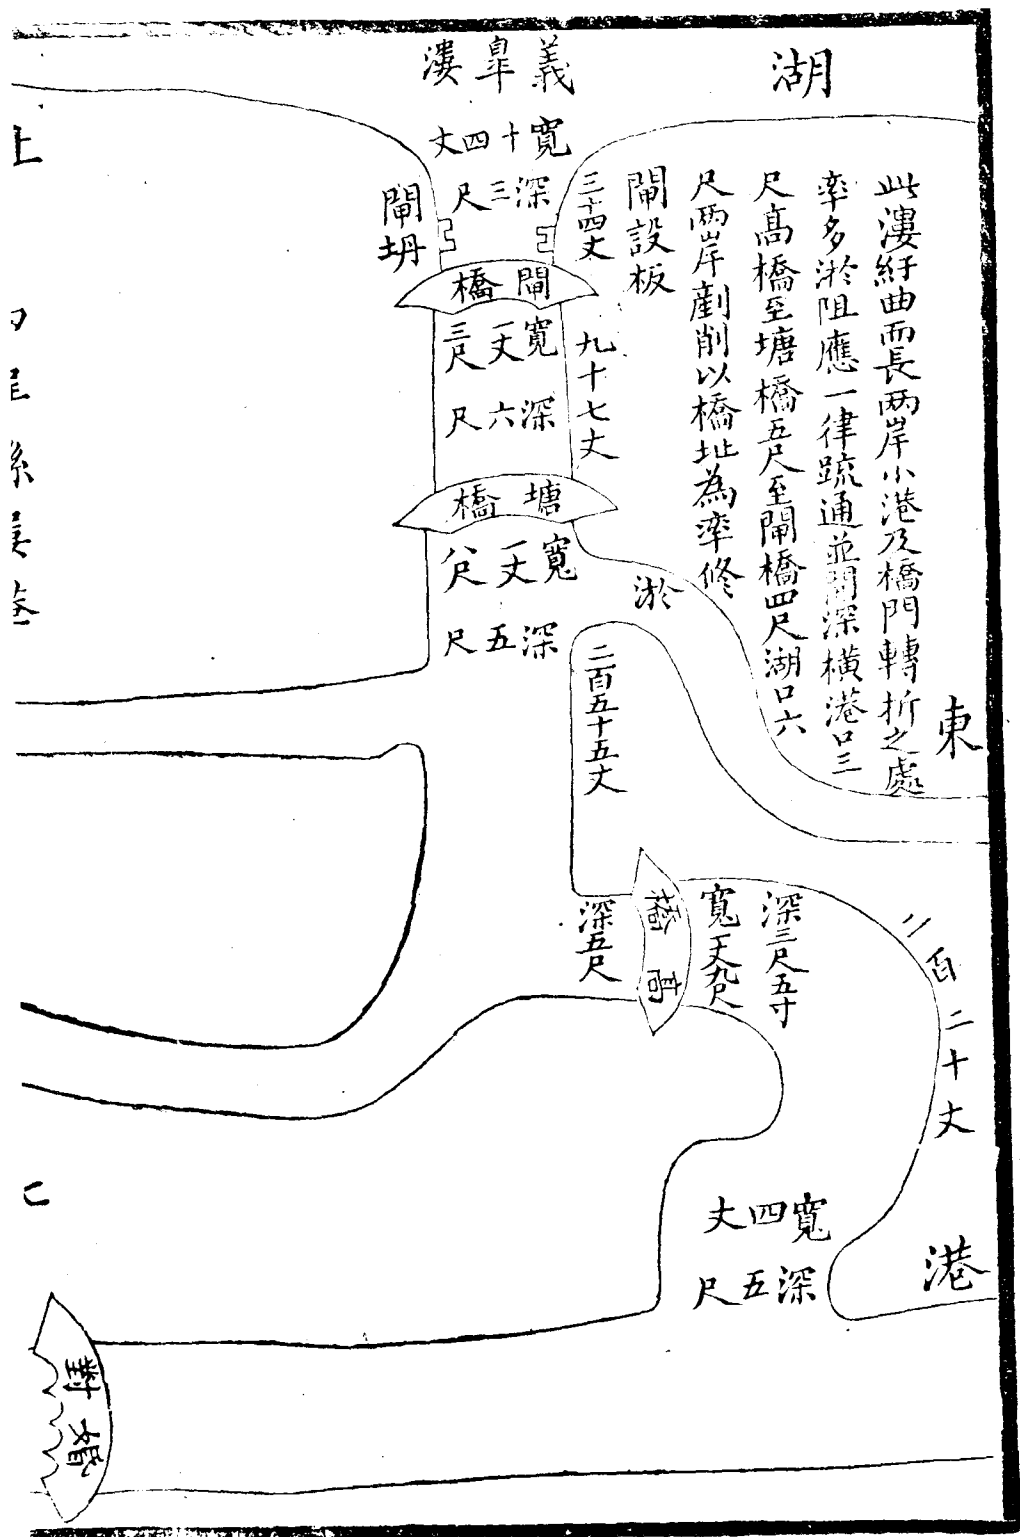 湖
東
港
此漊紆曲而長兩岸小港及橋門轉折之處
率多淤阻應一律疏通並開深橫港口三
尺高橋至塘橋五尺至閘橋四尺湖口六
尺兩岸剷削以橋址為率修
閘設板
義皐漊
寬十四丈
深三尺
三十四丈
閘坍
閘橋
寬一丈三尺
深六尺
九十七丈
塘橋
寬一丈八尺
深五尺
淤
二百五十五丈
高橋
深三尺五寸
寬一丈九尺
深五尺
二百二十丈
寬四丈
深五尺
上
對婚